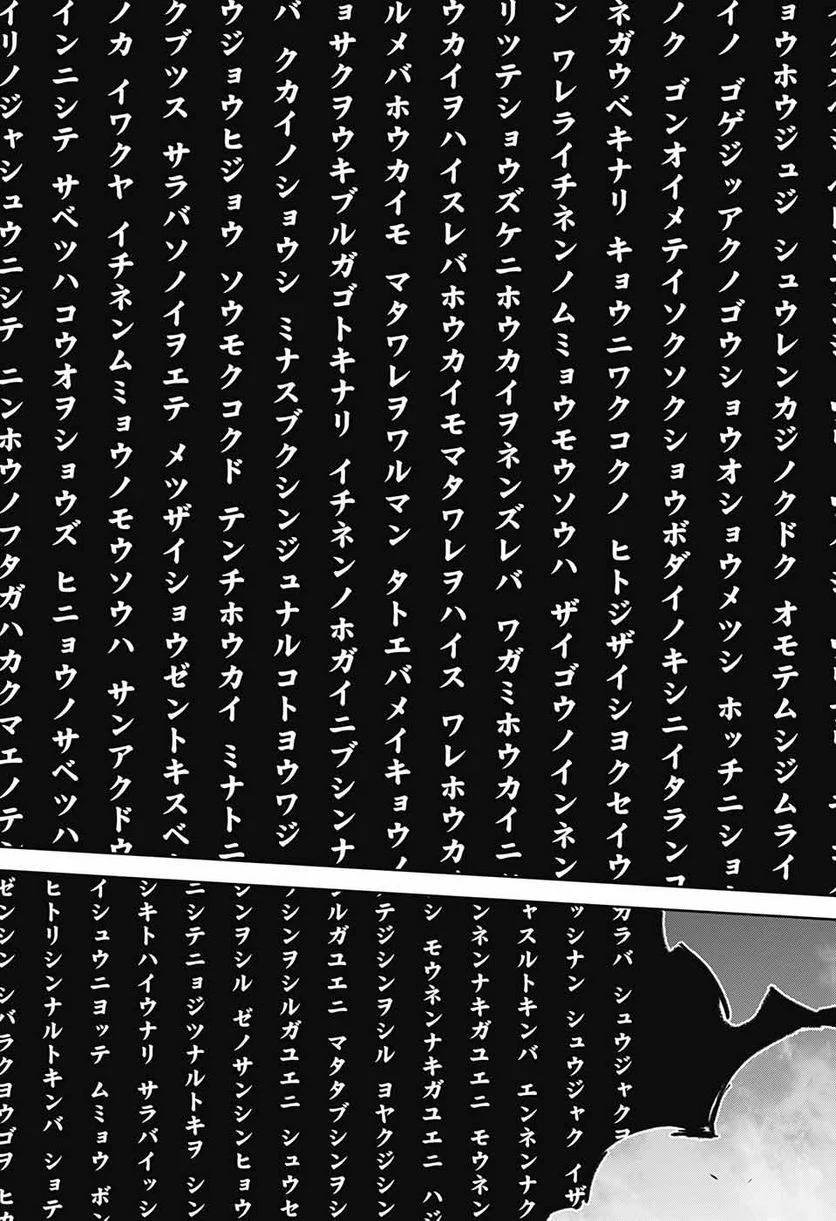 ョウホウジュジ シュウレンカジノクドク オモテムシジムライ
イノ ゴゲジッアクノゴウショウオショウメツシ ホッチニショ
ノク ゴンオイメテイソクソクショウボダイノキシニイタラン
ネガウベキナリ キョウニワクコクノ ヒトジザイシヨクセイウ
ン ワレライチネンノムミョウモウソウハ ザイゴウノインネン
リツテショウズケニホウカイヲネンズレバ ワガミホウカイニ
ウカイヲハイスレバホウカイモマタワレヲハイス ワレホウカ
ルメバホウカイモ マタワレヲワルマン タトエバメイキョウノ
ョサクヲウキブルガゴトキナリ イチネンノホガイニブシンナ
バ クカイノショウシ ミナスブクシンジュナルコトヨウワジ
ウジョウヒジョウ ソウモクコクド テンチホウカイ ミナトニ
クブツス サラバソノイヲエテ メツザイショウゼントキスベ
ノカ イワクヤ イチネンムミョウノモウソウハ サンアクドウ
インニシテ サベツハコウオヲショウズ ヒニョウノサベツハ
イリノジャシュウニシテ ニンホウノフタガハカクマエノテ
カラバ シュウジャクヨ
ッシナン シュウジャク イザ
ャスルトキンバ エンネンナク
ンネンナキガユエニ モウネン
シ モウネンナキガユエニ ハジ
テジシンヲシル ヨヤクジシン
ルガユエニ マタタブシンヲシ
シンヲシルガユエニ シュウセ
シンヲシル ゼノサンシンヒョウ
ニシテニョジツナルトキヲ シン
シキトハイウナリ サラバイッシ
イシュウニヨッテ ムミョウ ボン
ヒトリシンナルトキンバ ショテ
ゼンシン シバラクヨウゴヲ ヒカ